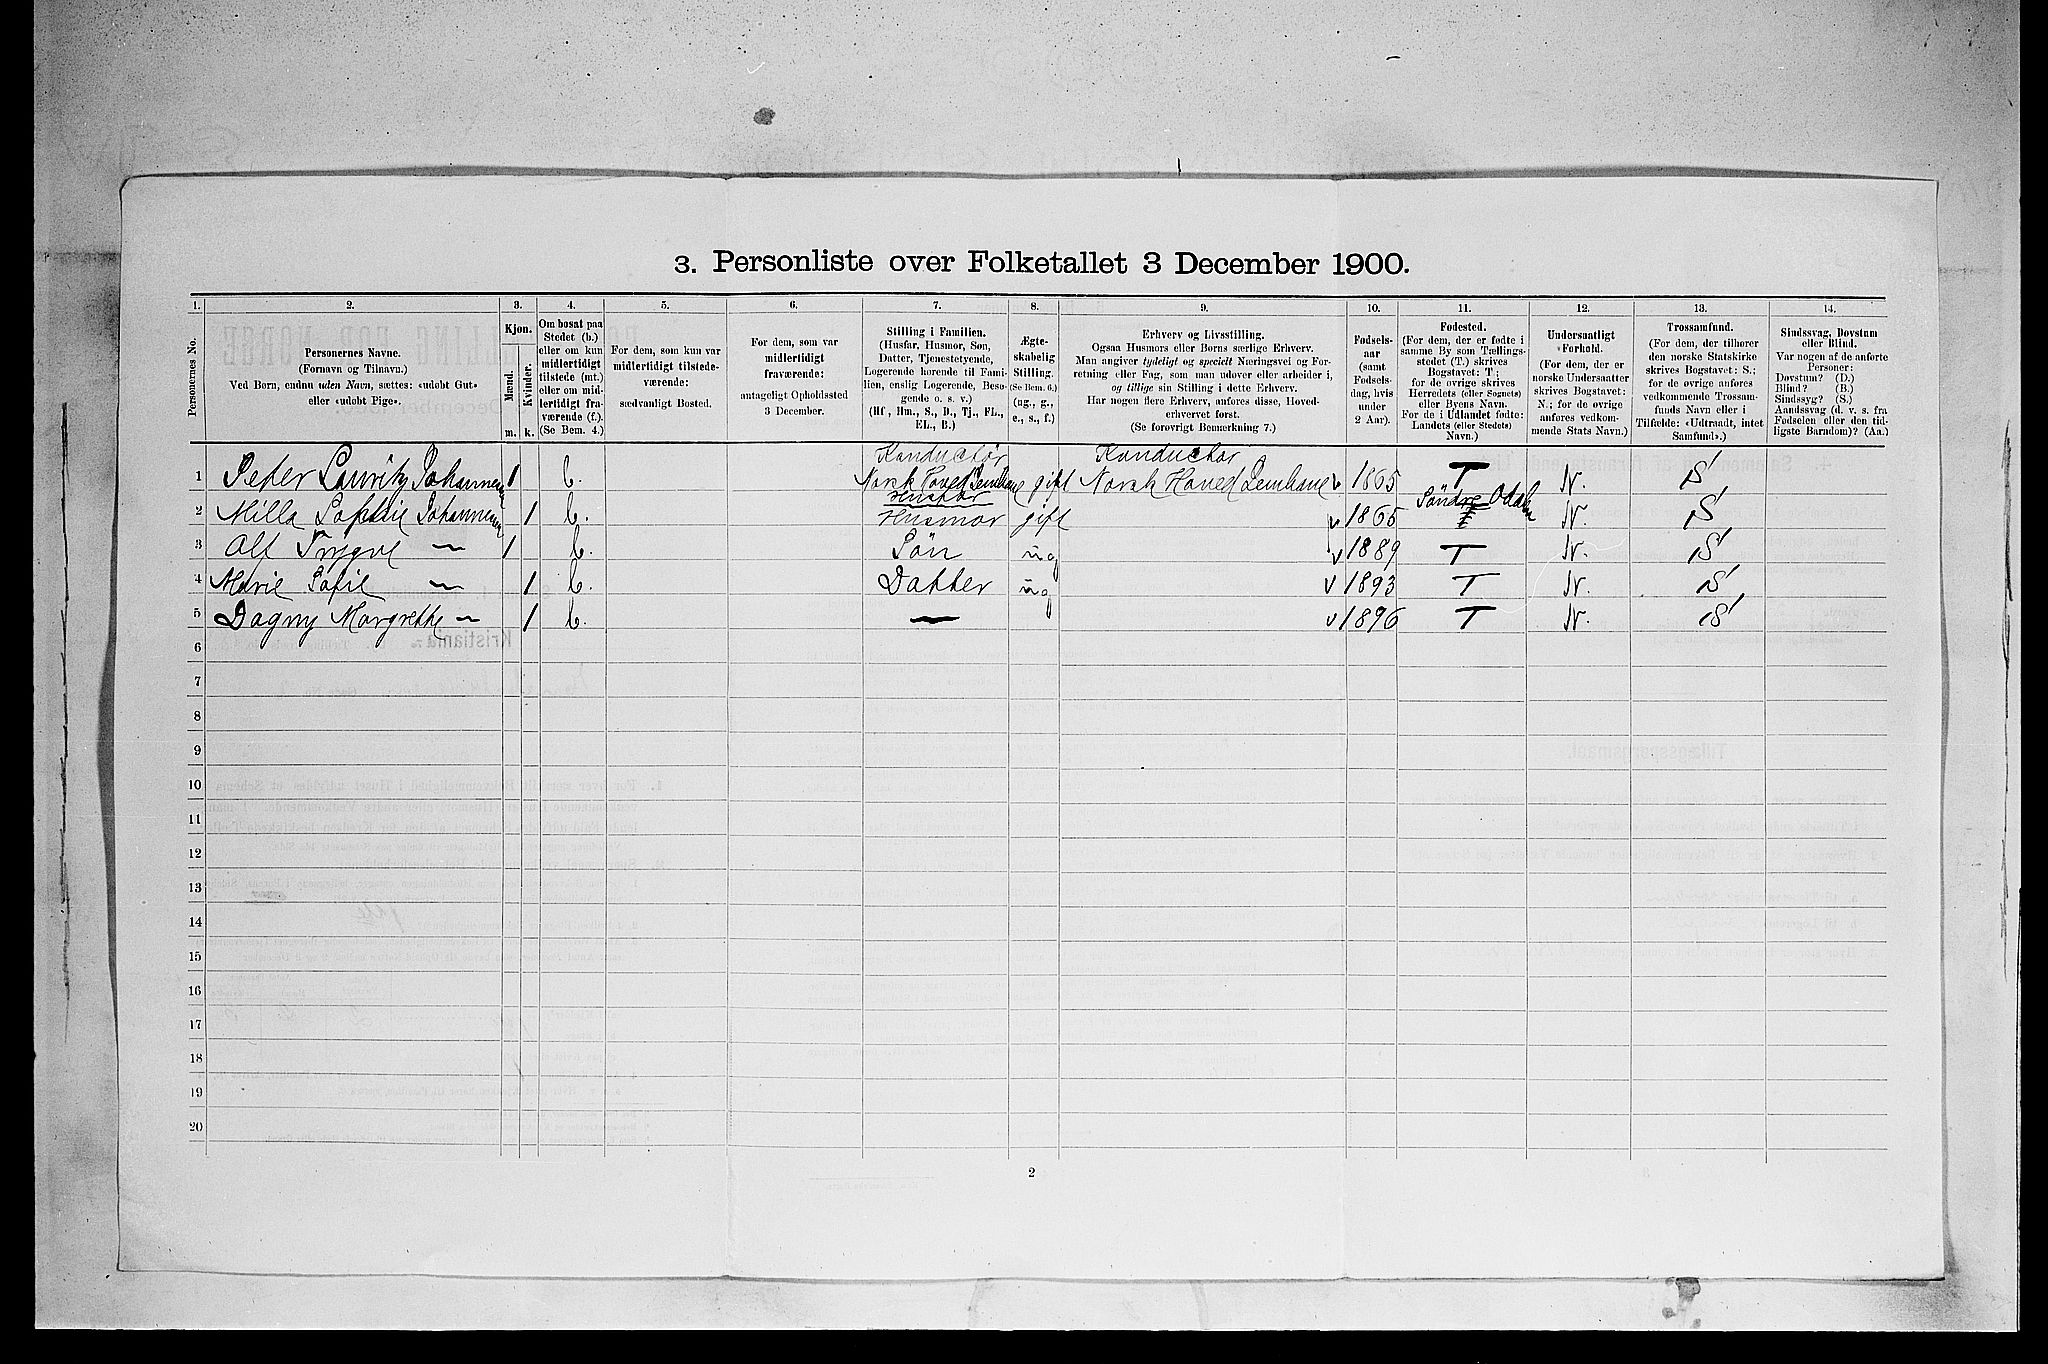 3. Personliste over Folketallet 3 December 1900.
1. 2. 3. 4. 5. 6. 7. 8. 9. 10. 11. 12. 13. 14.
Personernes No.
Personernes Navne.
(Fornavn og Tilnavn.)
Ved Børn, endnu uden Navn, sættes: «udøbt Gut»
eller «udøbt Pige».
Kjøn.
Mænd.
Kvinder.
m. k.
Om bosat paa
Stedet (b.)
eller om kun
midlertidigt
tilstede (mt.)
eller om mid-
lertidigt fra-
værende (f.).
(Se Bem. 4.)
For dem, som kun var
midlertidigt tilstede-
værende:
sædvanligt Bosted.
For dem, som var
midlertidigt
fraværende:
antageligt Opholdssted
3 December.
Stilling i Familien.
(Husfar, Husmor, Søn,
Datter, Tjenestetyende,
Logerende hørende til Fami-
lien, enslig Logerende, Besø-
gende o. s. v.)
(Hf, Hm., S., D., Tj., FL.,
EL., B.)
Ægte-
skabelig
Stilling.
(Se Bem. 6.)
(ug., g.,
e., s., f.)
Erhverv og Livsstilling.
Ogsaa Husmors eller Børns særlige Erhverv.
Man angiver tydeligt og specielt Næringsvei og For-
retning eller Fag, som man udøver eller arbeider i,
og tillige sin Stilling i dette Erhverv.
Har nogen flere Erhverv, anføres disse, Hoved-
erhvervet først.
(Se forøvrigt Bemærkning 7.)
Fødsels-
aar
(samt
Fødsels-
dag, hvis
under
2 Aar).
Fødested.
(For dem, der er fødte i
samme By som Tællings-
stedet (T.) skrives
Bogstavet: T.;
for de øvrige skrives
Herredets (eller Sognets)
eller Byens Navn.
For de i Udlandet fødte:
Landets (eller Stedets)
Navn.)
Undersaatligt
Forhold.
(For dem, der er
norske Undersaatter
skrives Bogstavet:
N.; for de øvrige
anføres vedkom-
mende Stats Navn.)
Trossamfund.
(For dem, der tilhører
den norske Statskirke
skrives Bogstavet: S.;
for de øvrige anføres
vedkommende Trossam-
funds Navn eller i
Tilfælde: «Udtraadt, intet
Samfund».)
Sindssvag, Døvstum
eller Blind.
Var nogen af de anførte
Personer:
Døvstum? (D.)
Blind? (B.)
Sindssyg? (S.)
Aandssvag (d. v. s. fra
Fødselen eller den tid-
ligste Barndom)? (Aa.)
Konductør Konductør
1 Peder Lauritz Johannesen 1 b. Norsk Hoved gift Norsk Hoved 1865 T N. S
Husfar
2 Milla Sophie Johannesen 1 b. Husmor gift 1865 Søndre Odalen N. S
3 Alf Trygve — 1 b. Søn ug 1889 T N. S
4 Marie Sofie — 1 b. Datter ug 1893 T N. S
5 Dagny Margrethe — 1 b. — 1896 T N. S
6
7
8
9
10
11
12
13
14
15
16
17
18
19
20
2